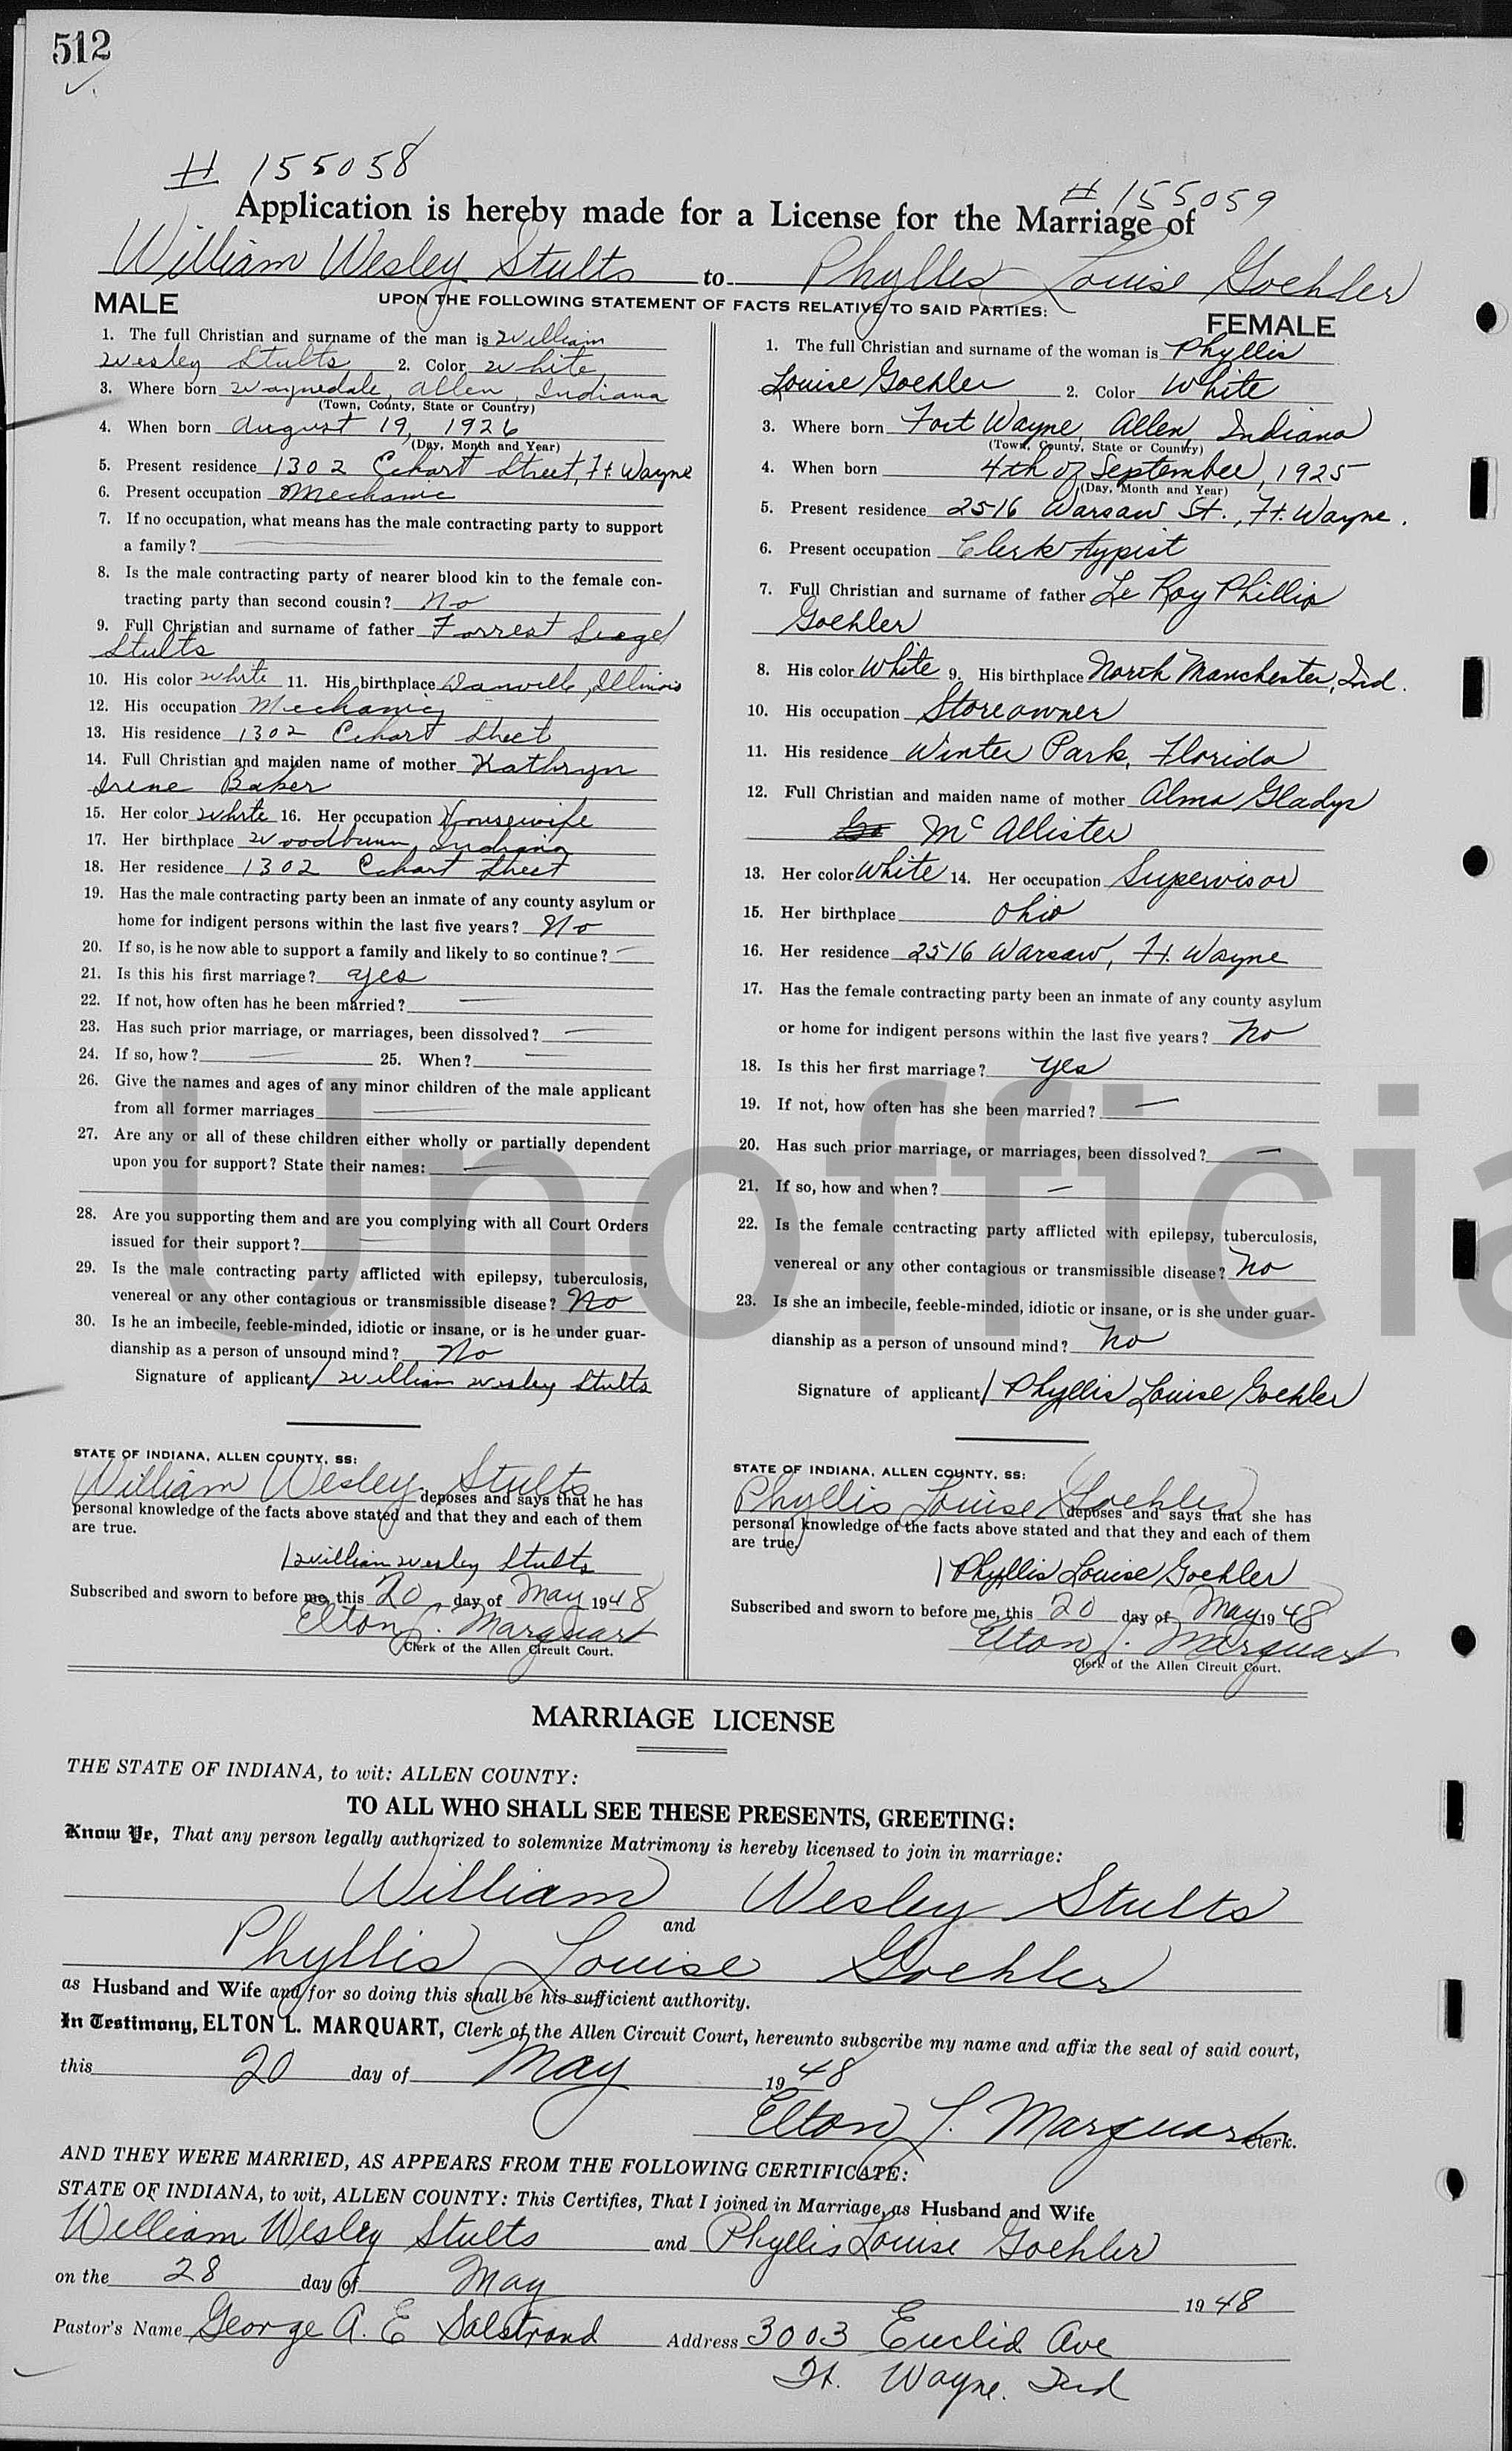 512
# 155058
# 155059
Application is hereby made for a License for the Marriage of
William Wesley Stults to Phyllis Louise Goehler
UPON THE FOLLOWING STATEMENT OF FACTS RELATIVE TO SAID PARTIES:
MALE
1. The full Christian and surname of the man is William
Wesley Stults 2. Color White
3. Where born Waynedale, Allen, Indiana
(Town, County, State or Country)
4. When born August 19, 1926
(Day, Month and Year)
5. Present residence 1302 Eckart Street, Ft. Wayne
6. Present occupation Mechanic
7. If no occupation, what means has the male contracting party to support
a family?
8. Is the male contracting party of nearer blood kin to the female con-
tracting party than second cousin? No
9. Full Christian and surname of father Forrest
Stults
10. His color White 11. His birthplace Danville, Illinois
12. His occupation Mechanic
13. His residence 1302 Eckart Street
14. Full Christian and maiden name of mother Kathryn
Irene Baker
15. Her color White 16. Her occupation Housewife
17. Her birthplace Woodburn, Indiana
18. Her residence 1302 Eckart Street
19. Has the male contracting party been an inmate of any county asylum or
home for indigent persons within the last five years? No
20. If so, is he now able to support a family and likely to so continue? —
21. Is this his first marriage? yes
22. If not, how often has he been married? —
23. Has such prior marriage, or marriages, been dissolved? —
24. If so, how? — 25. When? —
26. Give the names and ages of any minor children of the male applicant
from all former marriages —
27. Are any or all of these children either wholly or partially dependent
upon you for support? State their names: —
28. Are you supporting them and are you complying with all Court Orders
issued for their support? —
29. Is the male contracting party afflicted with epilepsy, tuberculosis,
venereal or any other contagious or transmissible disease? No
30. Is he an imbecile, feeble-minded, idiotic or insane, or is he under guar-
dianship as a person of unsound mind? No
Signature of applicant William Wesley Stults
STATE OF INDIANA, ALLEN COUNTY, SS:
William Wesley Stults deposes and says that he has
personal knowledge of the facts above stated and that they and each of them
are true.
William Wesley Stults
Subscribed and sworn to before me, this 20 day of May 1948
Elton L. Marquart
Clerk of the Allen Circuit Court.
FEMALE
1. The full Christian and surname of the woman is Phyllis
Louise Goehler 2. Color White
3. Where born Fort Wayne, Allen, Indiana
(Town, County, State or Country)
4. When born 4th of September, 1925
(Day, Month and Year)
5. Present residence 2516 Warsaw St., Ft. Wayne.
6. Present occupation Clerk typist
7. Full Christian and surname of father Le Roy Phillip
Goehler
8. His color White 9. His birthplace North Manchester, Ind.
10. His occupation Storeowner
11. His residence Winter Park, Florida
12. Full Christian and maiden name of mother Alma Gladys
McAllister
13. Her color White 14. Her occupation Supervisor
15. Her birthplace Ohio
16. Her residence 2516 Warsaw, Ft. Wayne
17. Has the female contracting party been an inmate of any county asylum
or home for indigent persons within the last five years? No
18. Is this her first marriage? yes
19. If not, how often has she been married? —
20. Has such prior marriage, or marriages, been dissolved? —
21. If so, how and when? —
22. Is the female contracting party afflicted with epilepsy, tuberculosis,
venereal or any other contagious or transmissible disease? No
23. Is she an imbecile, feeble-minded, idiotic or insane, or is she under guar-
dianship as a person of unsound mind? No
Signature of applicant Phyllis Louise Goehler
STATE OF INDIANA, ALLEN COUNTY, SS:
Phyllis Louise Goehler deposes and says that she has
personal knowledge of the facts above stated and that they and each of them
are true.
Phyllis Louise Goehler
Subscribed and sworn to before me, this 20 day of May 1948
Elton L. Marquart
Clerk of the Allen Circuit Court.
Unofficia
MARRIAGE LICENSE
THE STATE OF INDIANA, to wit: ALLEN COUNTY:
TO ALL WHO SHALL SEE THESE PRESENTS, GREETING:
Know Ye, That any person legally authorized to solemnize Matrimony is hereby licensed to join in marriage:
William Wesley Stults
and
Phyllis Louise Goehler
as Husband and Wife and for so doing this shall be his sufficient authority.
In Testimony, ELTON L. MARQUART, Clerk of the Allen Circuit Court, hereunto subscribe my name and affix the seal of said court,
this 20 day of May 1948
Elton L. Marquart Clerk.
AND THEY WERE MARRIED, AS APPEARS FROM THE FOLLOWING CERTIFICATE:
STATE OF INDIANA, to wit, ALLEN COUNTY: This Certifies, That I joined in Marriage, as Husband and Wife
William Wesley Stults and Phyllis Louise Goehler
on the 28 day of May 1948
Pastor's Name George A. E Salstrand Address 3003 Euclid Ave
Ft. Wayne. Ind